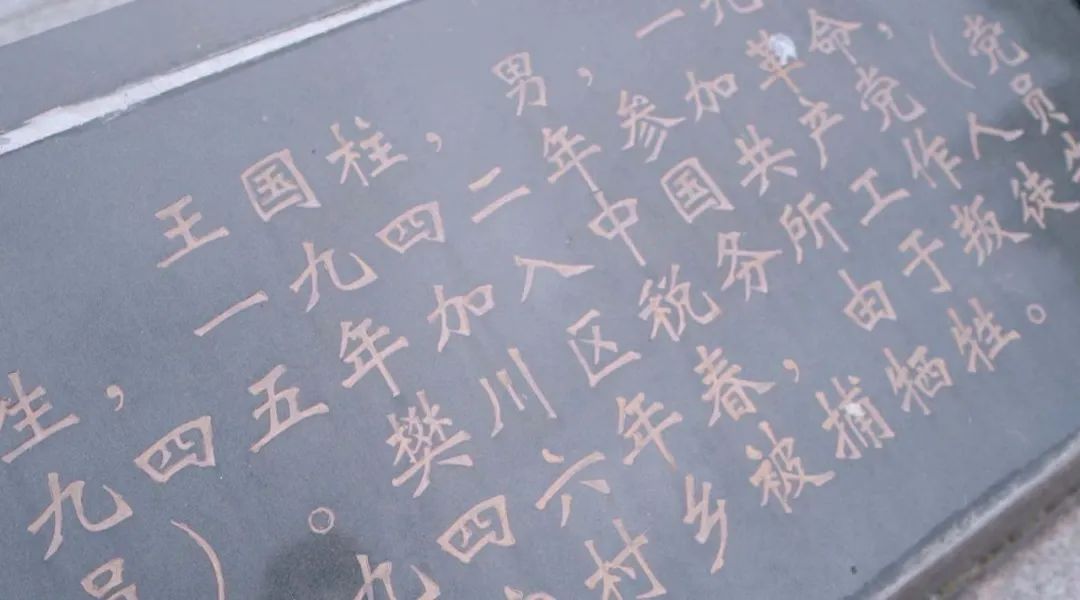 王国柱，男，一九
生，一九四二年参加革命，
九四五年加入中国共产党（党
员）。樊川区税务所工作人员
九四六年春，由于叛徒
村乡被捕牺牲。